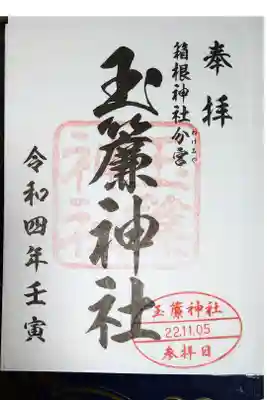 奉拝
箱根神社分宮
わけみや
玉簾神社
令和四年壬寅
玉簾神社
22.11.05
参拝日
玉簾神社